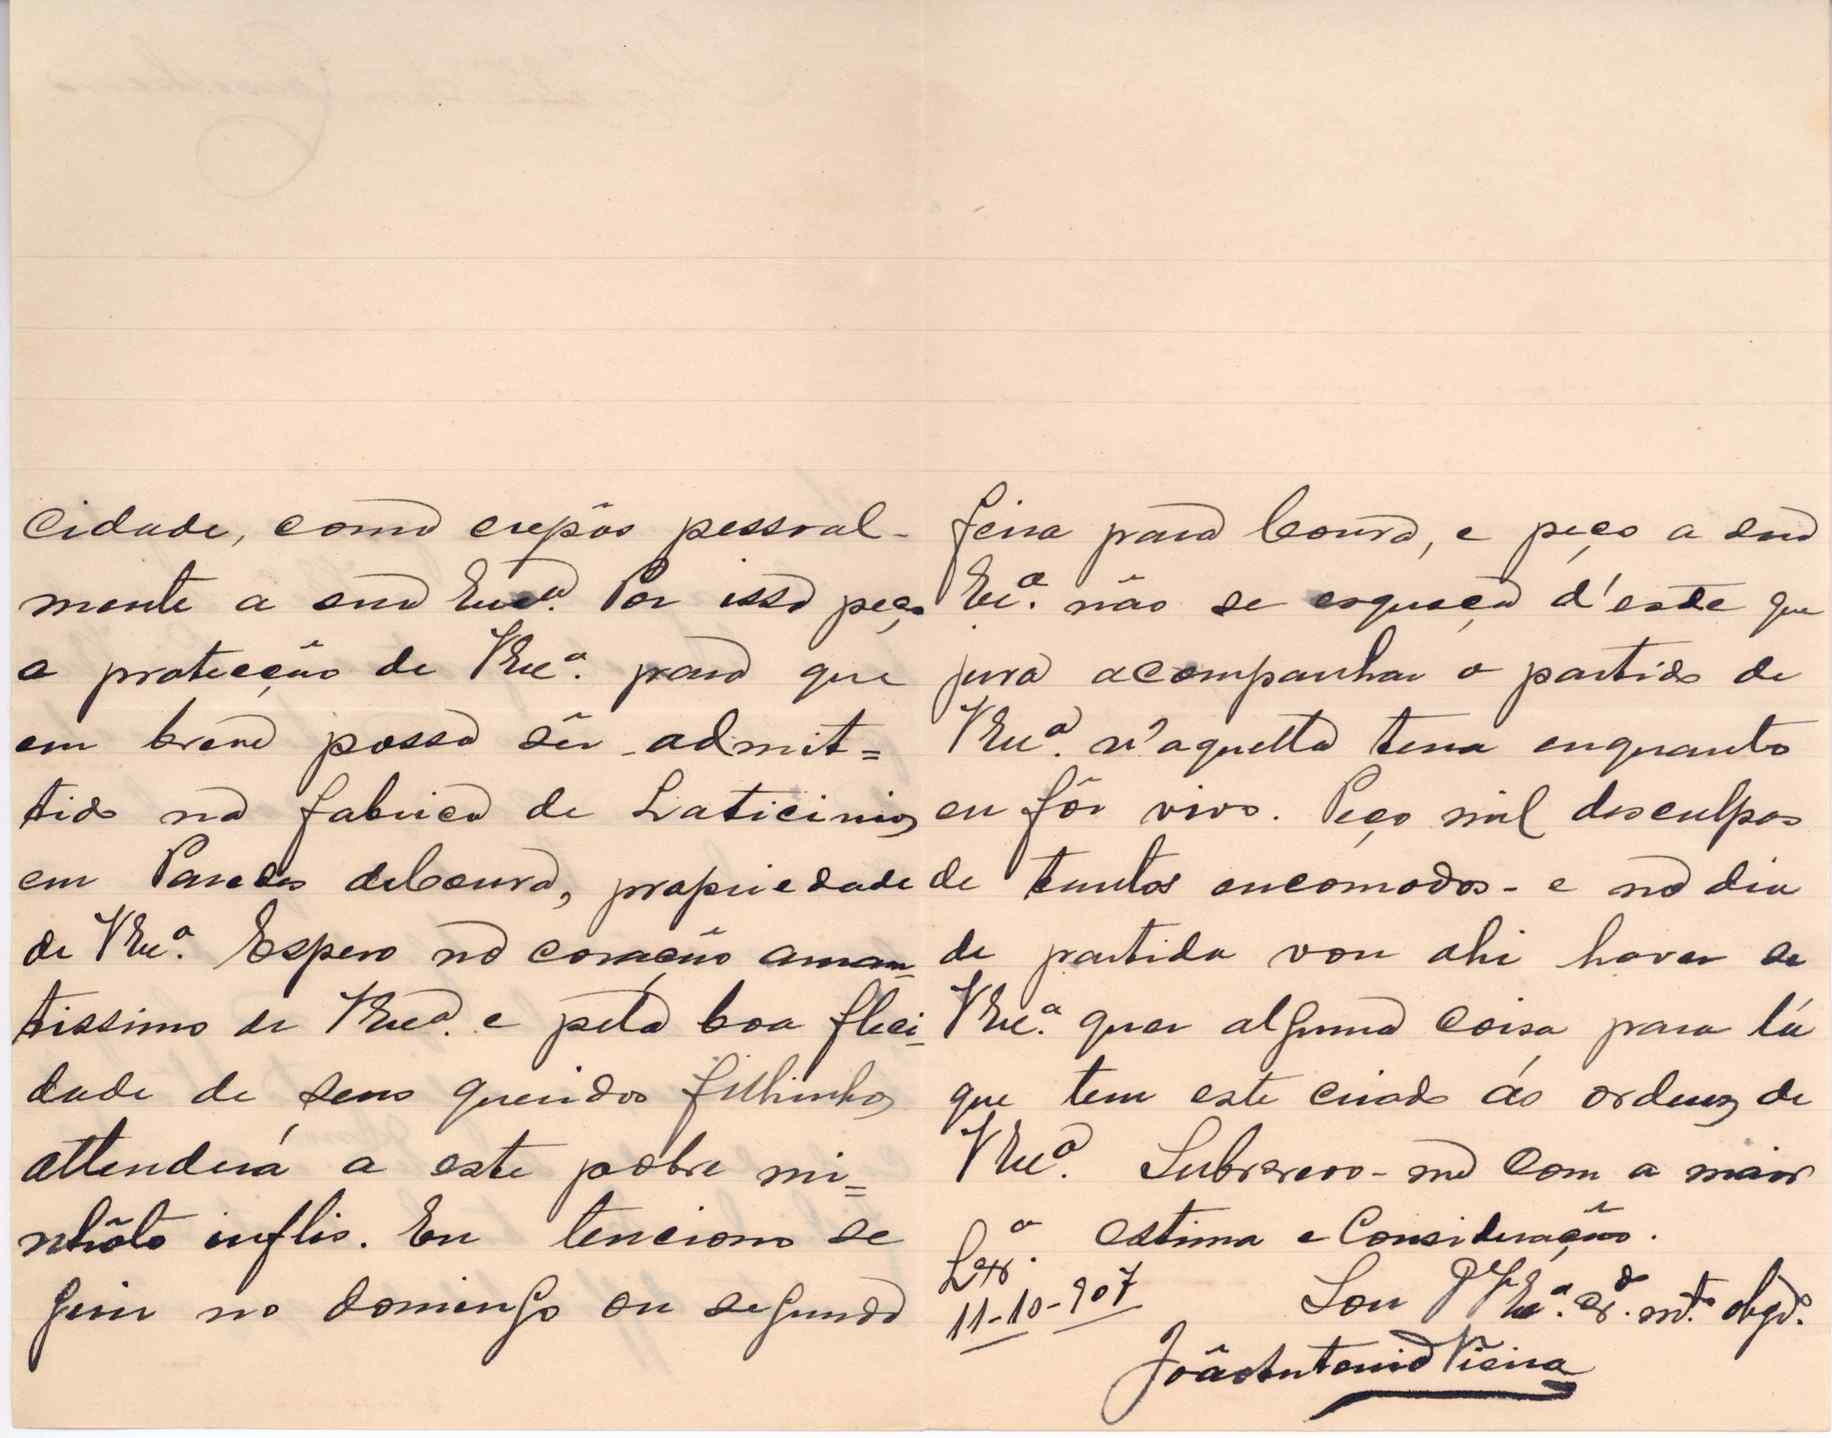 cidade, como expôs pessoal-
mente a sua Exca. Por isso peço
a protecção de VExca. para que
em breve possa sêr admit=
tido na fabrica de Laticinios
em Paredes de Coura, propriedade
de VExca. Espero no coração aman-
tissimo de VExca. e pela boa flici-
dade de seus queridos filhinhos
attenderá a este pobre mi=
nhôto inflis. Eu tenciono se
guir no domingo ou segunda
feira para Coura, e peço a sua
Exca. não se esqueça d'este que
jura acompanhar o partido de
VExca. n'aquella terra enquanto
eu fôr vivo. Peço mil desculpas
de tantos encomodos - e no dia
de partida vou ahi haver se
VExca. quer alguma coisa para lá
que tem este criado ás ordens de
VExca. Subscrevo-me com a maior
estima e Consideração.
Lxa.
11-10-907
Sou De VExca. Cr.do mto. obgdo.
João Antonio Vieira